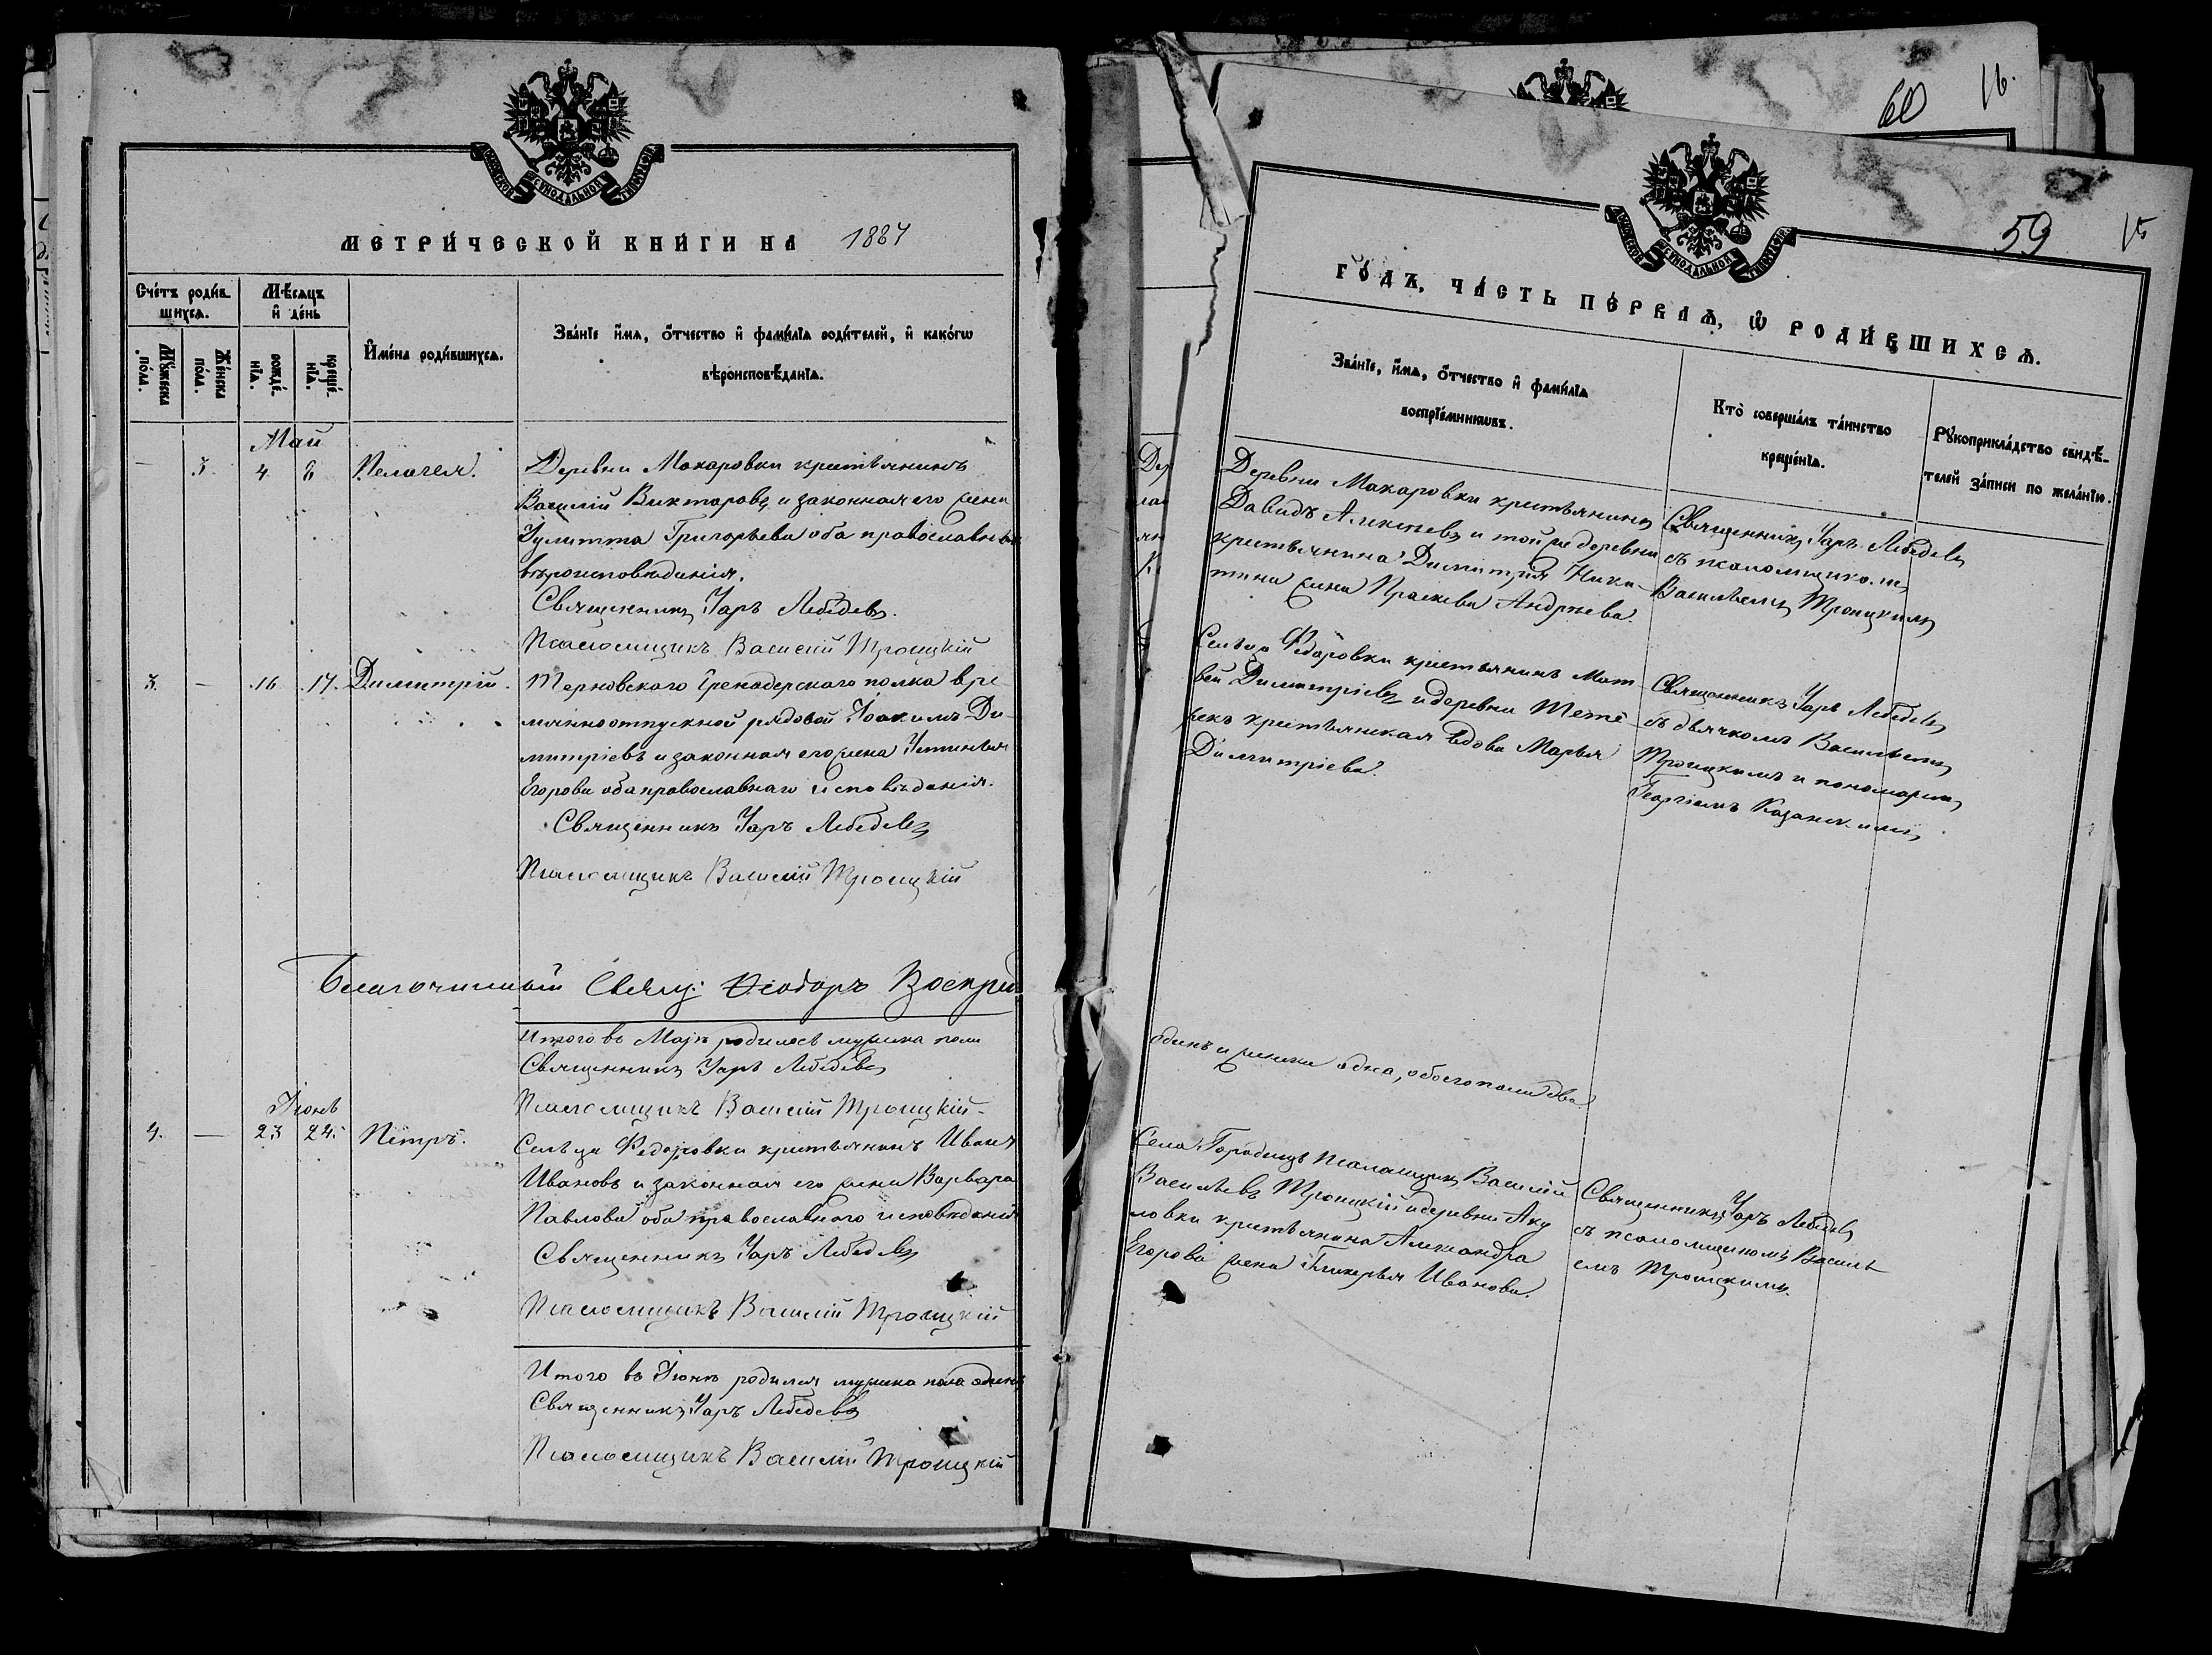 МОСКОВСКОЙ СѴНОДАЛЬНОЙ ТИПОГРАФІИ
МЕТРИ́ЧЕСКОЙ КНИ́ГИ НА 1887
Сче́тъ роди́в-
шихсѧ.
Мѣ́сѧцъ
и҆ де́нь
И҆мена̀ роди́вшихсѧ.
Зва́нїе и҆́мѧ, ѻ҆́тчество и҆ фами́лїѧ роди́телей, и҆ како́гѡ
вѣроисповѣ́данїѧ.
Мꙋ́жеска
по́ла.
Же́нска
по́ла.
рожде́-
нїѧ.
креще́-
нїѧ.
Май
— 3. 4. 8 Пелагея. Деревни Макаровки крестьянинъ
Василій Викторовъ и законная его жена
Улитта Григорьева оба православнаго
вѣроисповѣданія.
Священникъ Уаръ Лебедевъ.
Псаломщикъ Василій Троицкій
3. — 16. 17. Димитрій. Терновского Гренадерского полка вре-
мянноотпускной рядовой Іоакимъ Ди-
митріевъ и законная его жена Устинья
Егорова оба православнаго исповѣданія.
Священникъ Уаръ Лебедевъ
Псаломщикъ Василій Троицкій
Благочинный Свящ. Ѳеодоръ
Итого въ Маѣ родилось мужска пола
Священникъ Уаръ Лебедевъ
Псаломщикъ Василій Троицкій
Іюнь
4. — 23 24. Петръ. Сельца Федоровки крестьянинъ Иванъ
Ивановъ и законная его жена Варвара
Павлова оба православнаго исповѣданія
Священникъ Уаръ Лебедевъ
Псаломщикъ Василій Троицкій
Итого въ Іюнѣ родился мужска пола одинъ
Священникъ Уаръ Лебедевъ
Псаломщикъ Василій Троицкій
60 16.
59 15
МОСКОВСКОЙ СѴНОДАЛЬНОЙ ТИПОГРАФІИ
ГО́ДЪ, ЧА́СТЬ ПЕ́РВАѦ, Ѡ҆ РОДИ́ВШИХСѦ.
Зва́нїе, и҆́мѧ, ѻ҆́тчество и҆ фами́лїѧ
воспрїе́мникѡвъ.
Кто̀ соверша́лъ та́инство
креще́нїѧ.
Рꙋкоприкла́дство свидѣ́-
телей за́писи по жела́нїю.
Деревни Макаровки крестьянинъ
Давидъ Алексѣевъ и той же деревни
крестьянина Димитрія Ники-
тина жена Праскева Андрѣева.
Священникъ Уаръ Лебедевъ
съ псаломщикомъ
Васильемъ Троицкимъ
Сельца Федоровки крестьянинъ Мат-
вей Димитріевъ и деревни Тетё-
рекъ крестьянская вдова Марья
Димитріева.
Священникъ Уаръ Лебедевъ
съ дьячкомъ Васильемъ
Троицкимъ и пономаремъ
Георгіемъ Казанскимъ
одинъ и женска одна, обоего пола два.
Села Городищъ псаломщикъ Василій
Васильевъ Троицкій и деревни Аку-
ловки крестьянина Александра
Егорова жена Гликерья Иванова.
Священникъ Уаръ Лебедевъ
съ псаломщикомъ Василь-
емъ Троицкимъ.